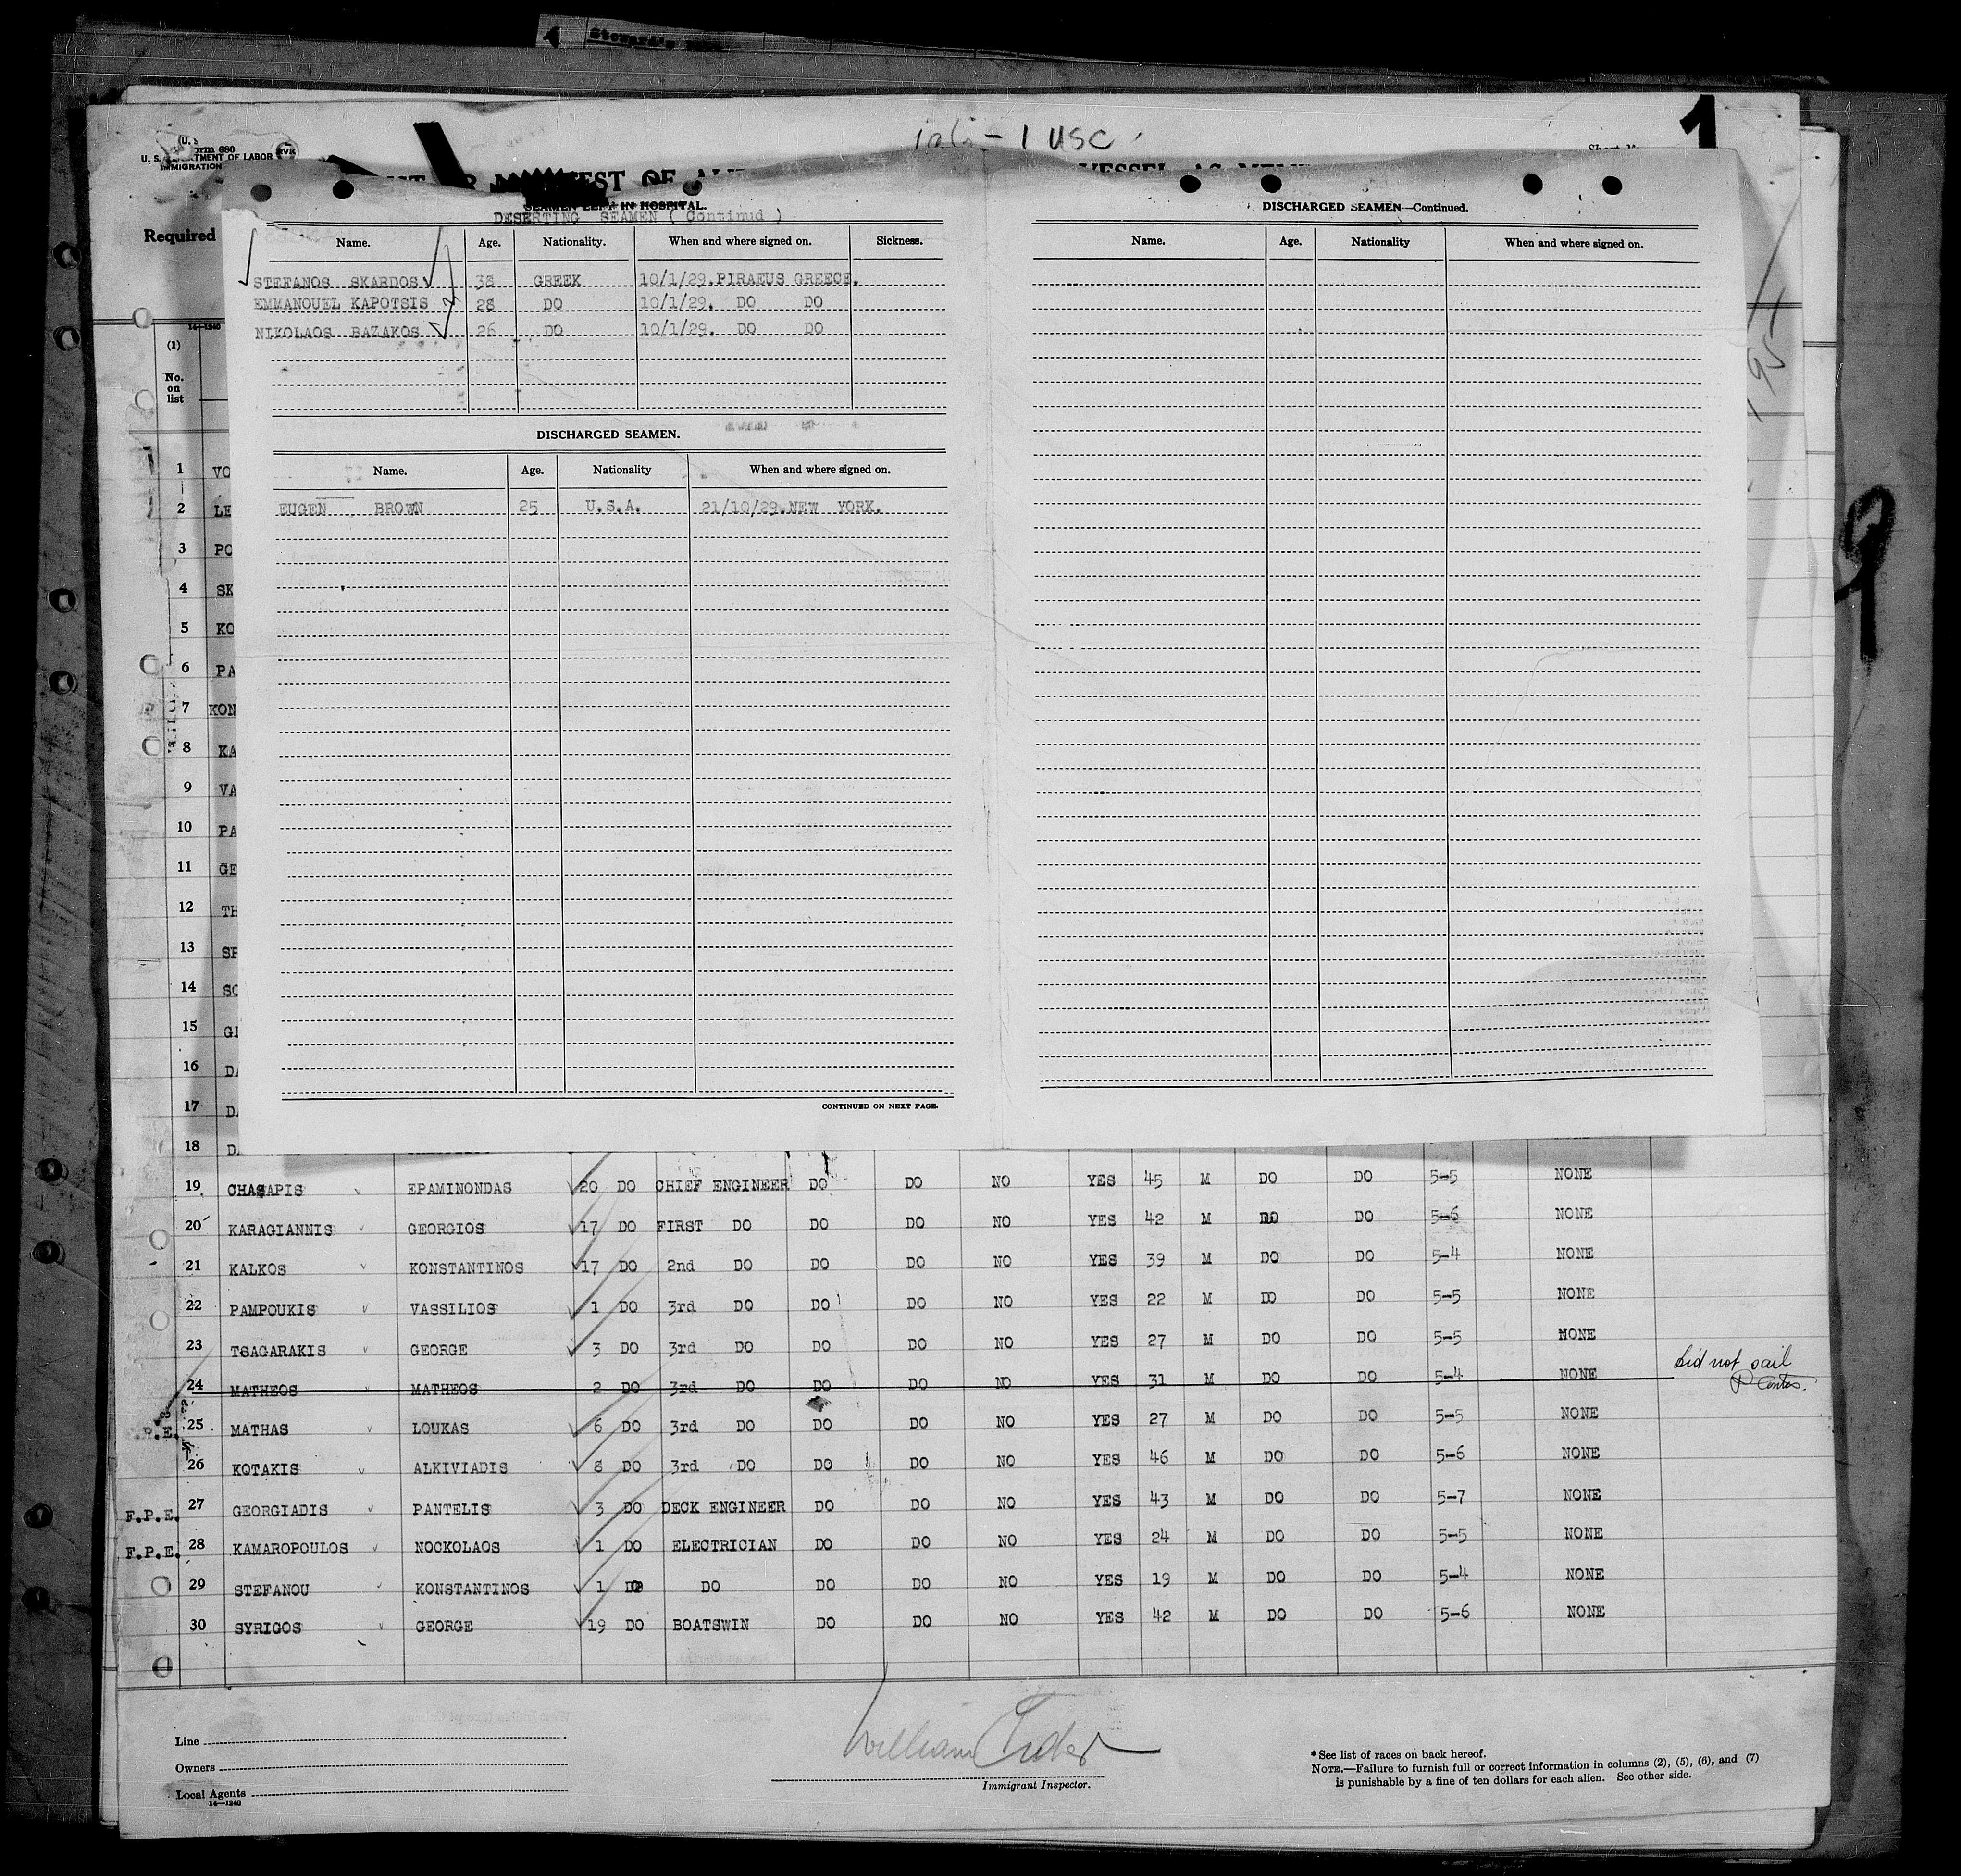 4 Steward's
1 USC
1
Form 680
U. S. DEPARTMENT OF LABOR
IMMIGRATION
RVK
EST OF
VESSEL AS
Required
SEAMEN LEFT IN HOSPITAL.
DESERTING SEAMEN ( Continud )
Name. Age. Nationality. When and where signed on. Sickness.
STEFANOS SKARDOS 38 GREEK 10/1/29.PIRAEUS GREECE.
EMMANOUEL KAPOTSIS 28 DO 10/1/29. DO DO
NIKOLAOS BAZAKOS 26 DO 10/1/29. DO DO
DISCHARGED SEAMEN.
Name. Age. Nationality When and where signed on.
EUGEN BROWN 25 U.S.A. 21/10/29.NEW YORK.
CONTINUED ON NEXT PAGE.
DISCHARGED SEAMEN—Continued.
Name. Age. Nationality When and where signed on.
195
9
14—1240
(1)
No.
on
list
1 VO
2 LE
3 PO
4 SK
5 KO
6 PA
7 KON
8 KA
9 VA
10 PA
11 GE
12 TH
13 SP
14 SO
15 GI
16 DA
17 DA
18 DA
19 CHASAPIS EPAMINONDAS 20 DO CHIEF ENGINEER DO DO NO YES 45 M DO DO 5-5 NONE
20 KARAGIANNIS GEORGIOS 17 DO FIRST DO DO DO NO YES 42 M DO DO 5-6 NONE
21 KALKOS KONSTANTINOS 17 DO 2nd DO DO DO NO YES 39 M DO DO 5-4 NONE
22 PAMPOUKIS VASSILIOS 1 DO 3rd DO DO DO NO YES 22 M DO DO 5-5 NONE
23 TSAGARAKIS GEORGE 3 DO 3rd DO DO DO NO YES 27 M DO DO 5-5 NONE
24 MATHEOS MATHEOS 2 DO 3rd DO DO DO NO YES 31 M DO DO 5-4 NONE did not sail
25 MATHAS LOUKAS 6 DO 3rd DO DO DO NO YES 27 M DO DO 5-5 NONE
26 KOTAKIS ALKIVIADIS 8 DO 3rd DO DO DO NO YES 46 M DO DO 5-6 NONE
F.P.E. 27 GEORGIADIS PANTELIS 3 DO DECK ENGINEER DO DO NO YES 43 M DO DO 5-7 NONE
F.P.E. 28 KAMAROPOULOS NOCKOLAOS 1 DO ELECTRICIAN DO DO NO YES 24 M DO DO 5-5 NONE
29 STEFANOU KONSTANTINOS 1 DO DO DO DO NO YES 19 M DO DO 5-4 NONE
30 SYRIGOS GEORGE 19 DO BOATSWIN DO DO NO YES 42 M DO DO 5-6 NONE
Line
Owners
Local Agents
14—1240
William
Immigrant Inspector.
* See list of races on back hereof.
NOTE.—Failure to furnish full or correct information in columns (2), (5), (6), and (7)
is punishable by a fine of ten dollars for each alien. See other side.